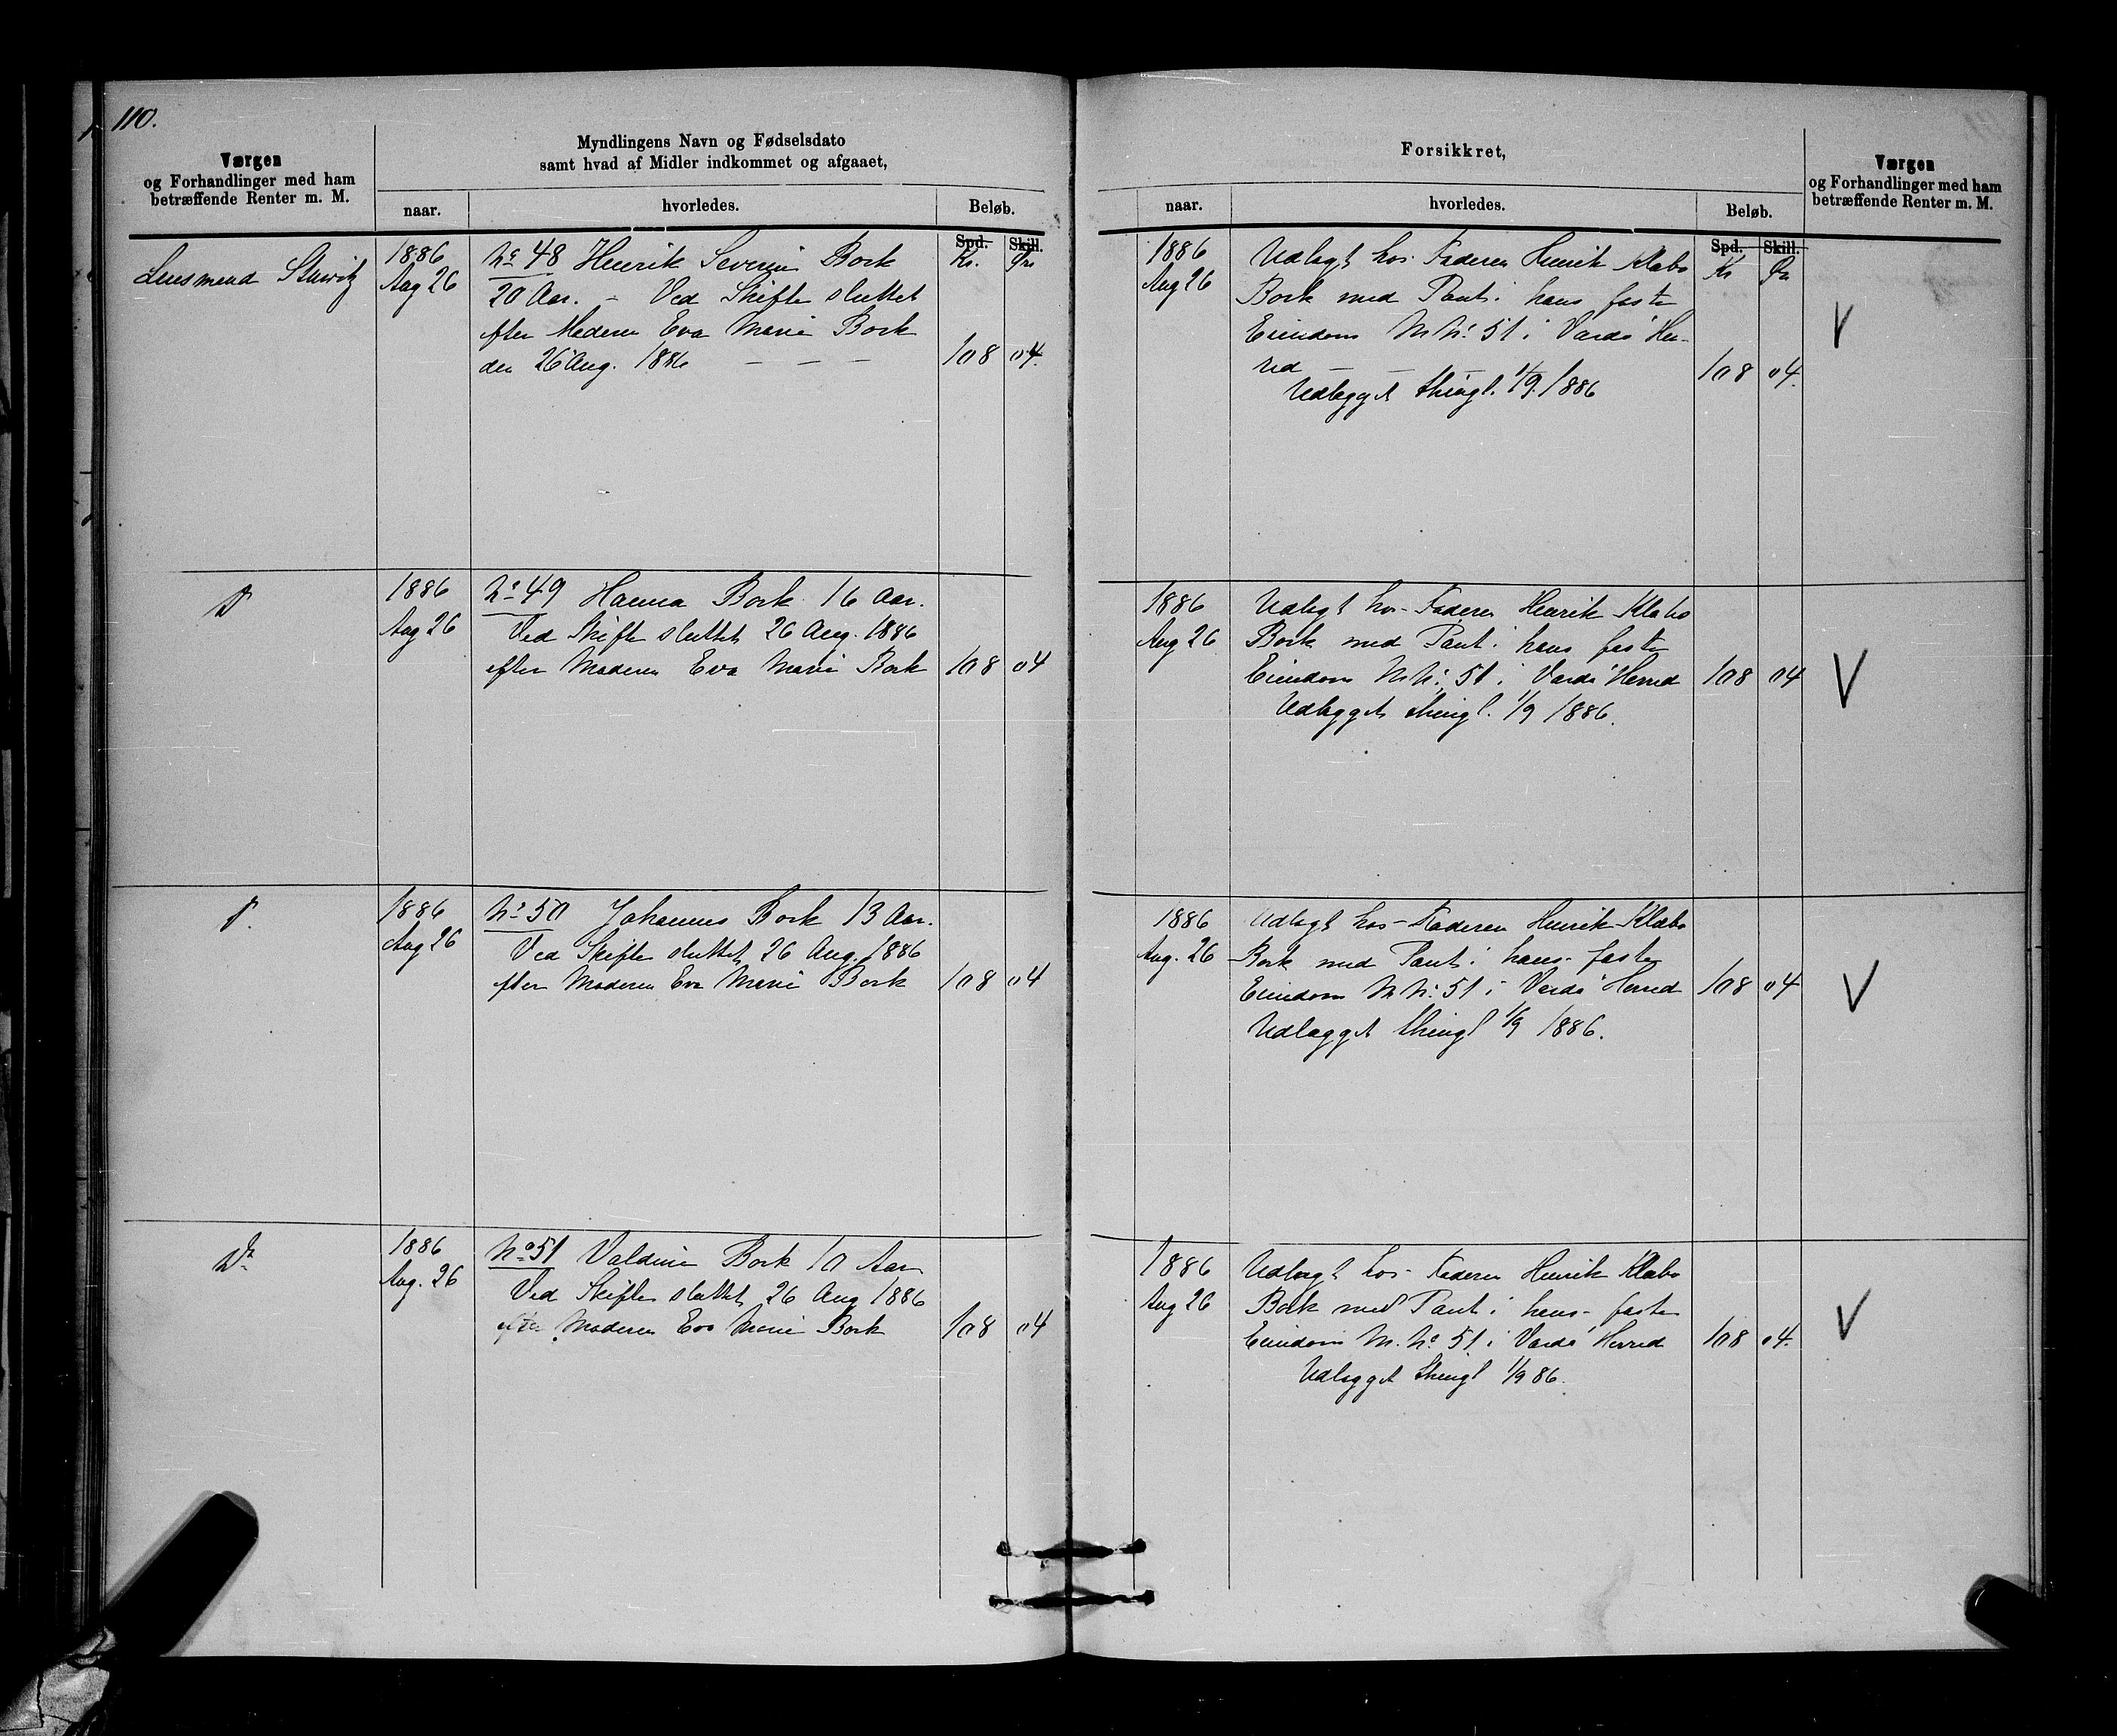 110.
Værgen
og Forhandlinger med ham
betræffende Renter m. M.
Myndlingens Navn og Fødselsdato
samt hvad af Midler indkommet og afgaaet,
naar.
hvorledes.
Beløb.
Spd. Skill.
Kr. Ør
Lensmand
1886
Aug 26
No 48 Henrik Severin Bork
20 Aar. - Ved Skifte sluttet
efter Moderen Eva Marie Bork
den 26 Aug. 1886 - - -
108 04.
Do
1886
Aug 26
No 49 Hanna Bork 16 Aar.
Ved Skifte sluttet 26 Aug. 1886
efter Moderen Eva Marie Bork
108 04
Do
1886
Aug 26
No 50 Johannes Bork 13 Aar.
Ved Skifte sluttet 26 Aug. 1886
efter Moderen Eva Marie Bork
108 04
Do
1886
Aug. 26
No 51 Valdine Bork 10 Aar
Ved Skifte sluttet 26 Aug 1886
efter Moderen Eva Marie Bork
108 04
Forsikkret,
naar.
hvorledes.
Beløb.
Værgen
og Forhandlinger med ham
betræffende Renter m. M.
Spd. Skill.
Kr Ør
1886
Aug 26
Udlagt hos Faderen Henrik Klæbo
Bork med Pant i hans faste
Eiendom M No 51 i Vardø Her-
red - - -
108 04.
Udlægget thingl. 1/9. 1886
V
1886
Aug 26
Udlagt hos Faderen Henrik Klæbo
Bork med Pant i hans faste
Eiendom M No 51 i Vardø Herred
108 04
Udlægget thingl. 1/9 1886.
V
1886
Aug. 26
Udlagt hos Faderen Henrik Klæbo
Bork med Pant i hans faste
Eiendom M No 51 i Vardø Herred
108 04
Udlægget thingl 1/9 1886.
V
1886
Aug 26
Udlagt hos Faderen Henrik Klæbo
Bork med Pant i hans faste
Eiendom M. No 51 i Vardø Herred
108 04.
Udlægget thingl 1/9 86.
V